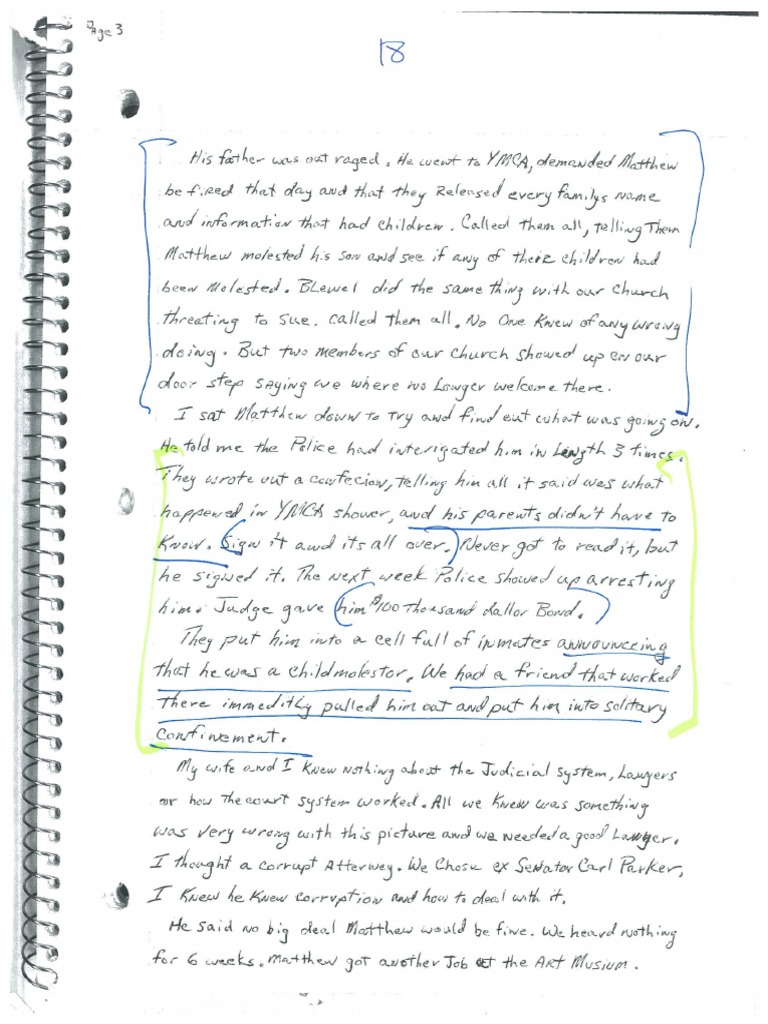 Page 3
18
His father was out raged. He went to YMCA, demanded Matthew
be fired that day and that they Released every familys name
and information that had children. Called them all, telling Them
Matthew molested his son and see if any of their children had
been Molested. BLewel did the same thing with our Church
threating to sue. Called them all. No One Knew of any wrong
doing. But two members of our church showed up on our
door step saying we where no Longer welcome there.
I sat Matthew down to try and find out what was going on.
He told me the Police had interigated him in Length 3 times.
They wrote out a confecion, telling him all it said was what
happened in YMCA shower, and his parents didn't have to
Know. Sign it and its all over. Never got to read it, but
he signed it. The next week Police showed up arresting
him. Judge gave him $100 Thousand dallor Bond.
They put him into a cell full of inmates announceing
that he was a childmolestor. We had a friend that worked
there immeditly pulled him out and put him into solitary
confinement.
My wife and I Knew nothing about the Judicial system, Lawyers
or how The court system worked. All we Knew was something
was very wrong with this picture and we needed a good Lawyer.
I thought a corrupt Atterney. We Chose ex Senator Carl Parker,
I Knew he Knew corruption and how to deal with it.
He said no big deal Matthew would be fine. We heard nothing
for 6 weeks. Matthew got another Job at the Art Musium.